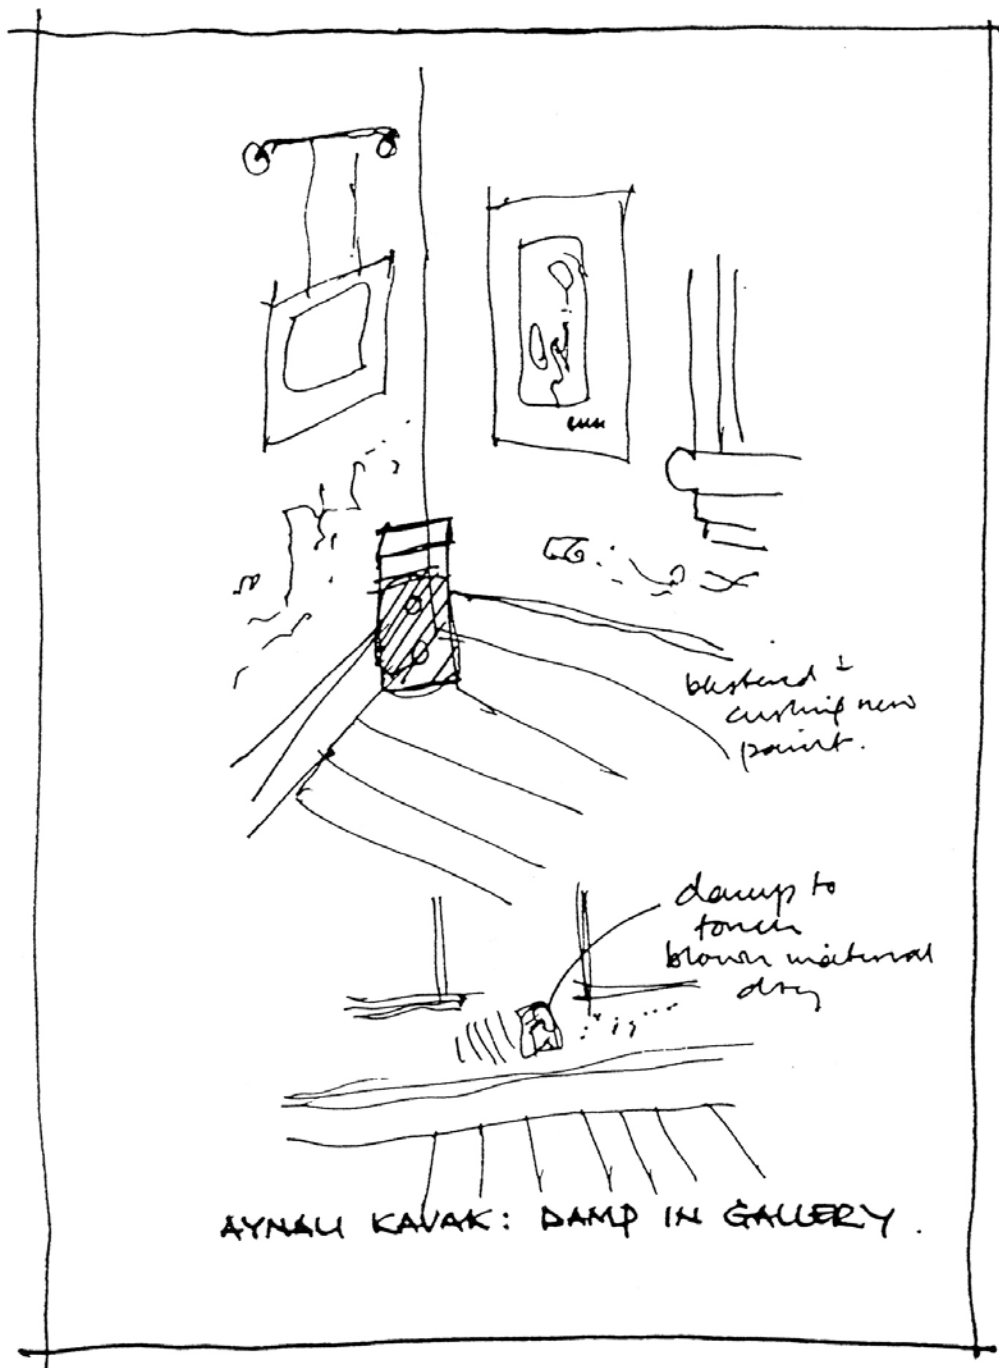 blistered +
crusting new
paint.
damp to
touch
blown material
dry
AYNALI KAVAK: DAMP IN GALLERY.